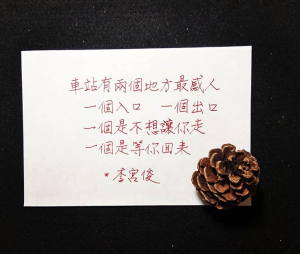 車站有兩個地方最感人
一個入口 一個出口
一個是不想讓你走
一個是等你回來
*李宮俊